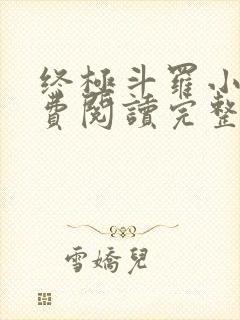 终極斗羅小
費閱讀完整
雪嬌兒